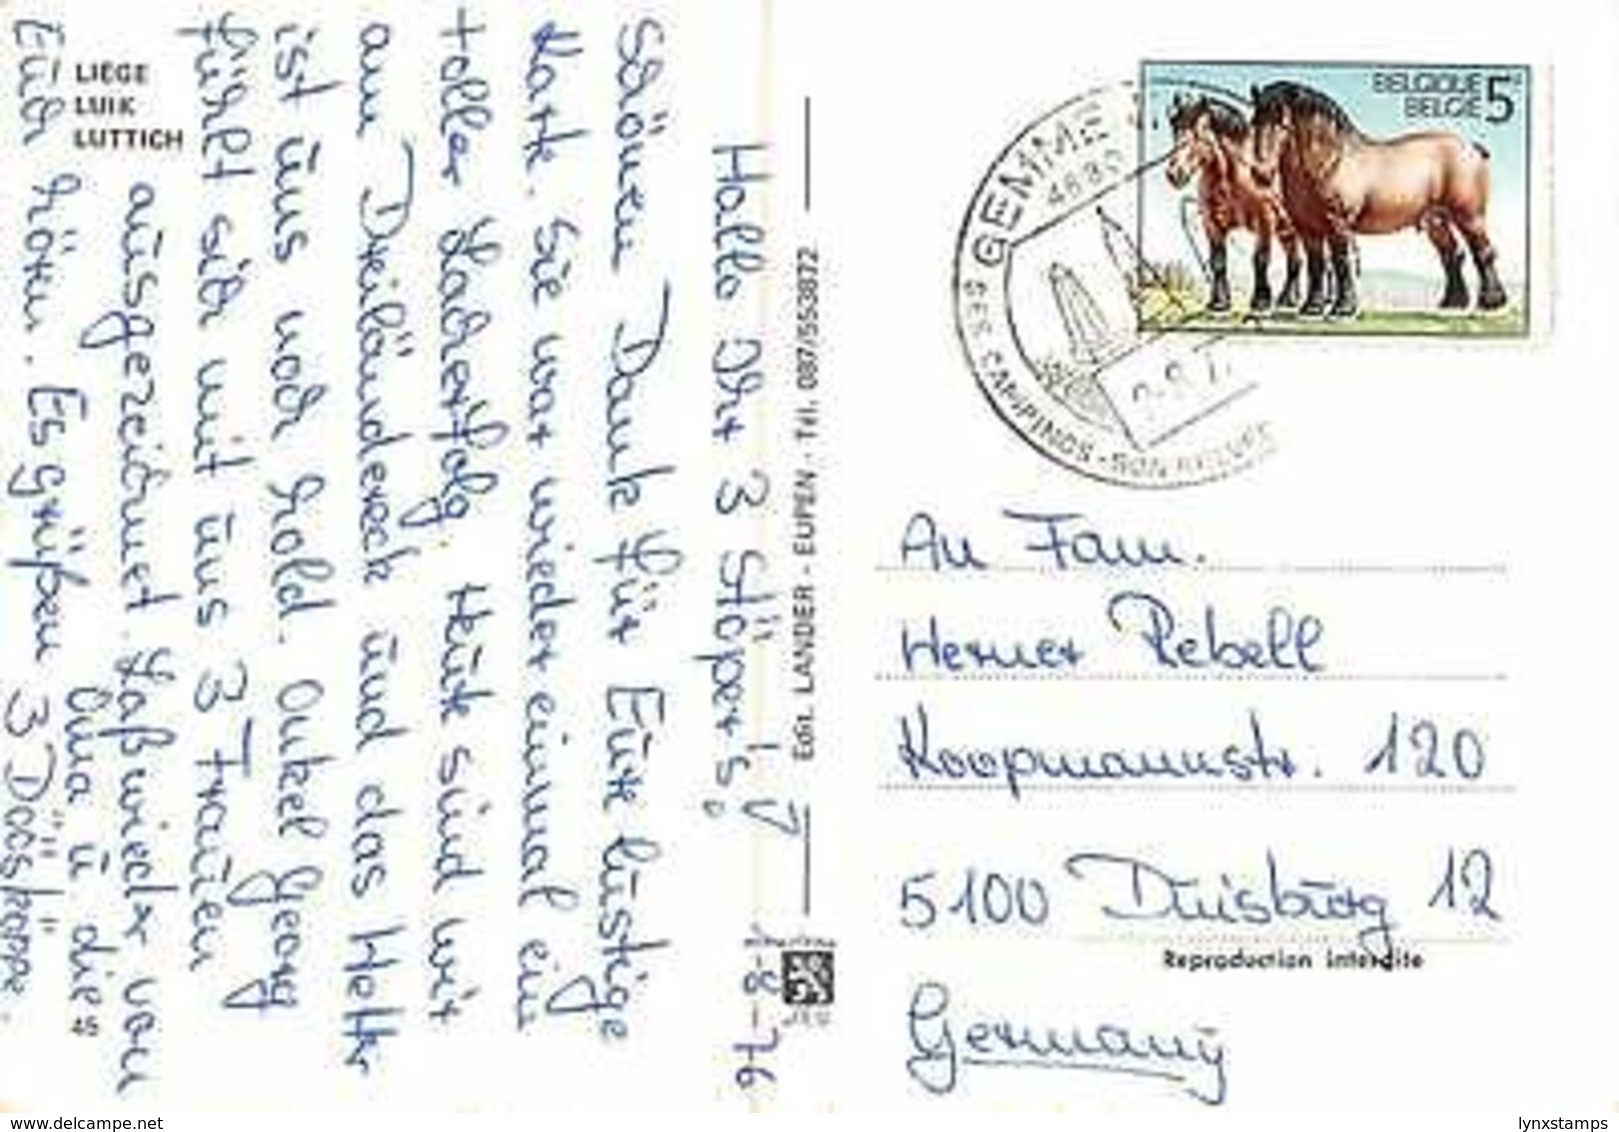 LIÉGE
LUIK
LUTTICH
1-8-76
Hallo Ihr 3 Stöper's!
Schönen Dank für Eure lustige
Karte. Sie war wieder einmal ein
toller Lacherfolg. Heute sind wir
am Dreiländereck und das Wetter
ist uns noch hold. Onkel Georg
fühlt sich mit uns 3 Frauen
ausgezeichnet. Laß wieder von
Euch hören. Es grüßen 3 Döskoppe.
Oma u die
45
Edit. LANDER - EUPEN - Tél. 087/553872
BELGIQUE 5F
BELGIË
GEMME
4690
SES CAMPINGS - SON
An Fam.
Werner Rebell
Koopmannstr. 120
5100 Duisburg 12
Reproduction interdite
Germany
www.delcampe.net
lynxstamps